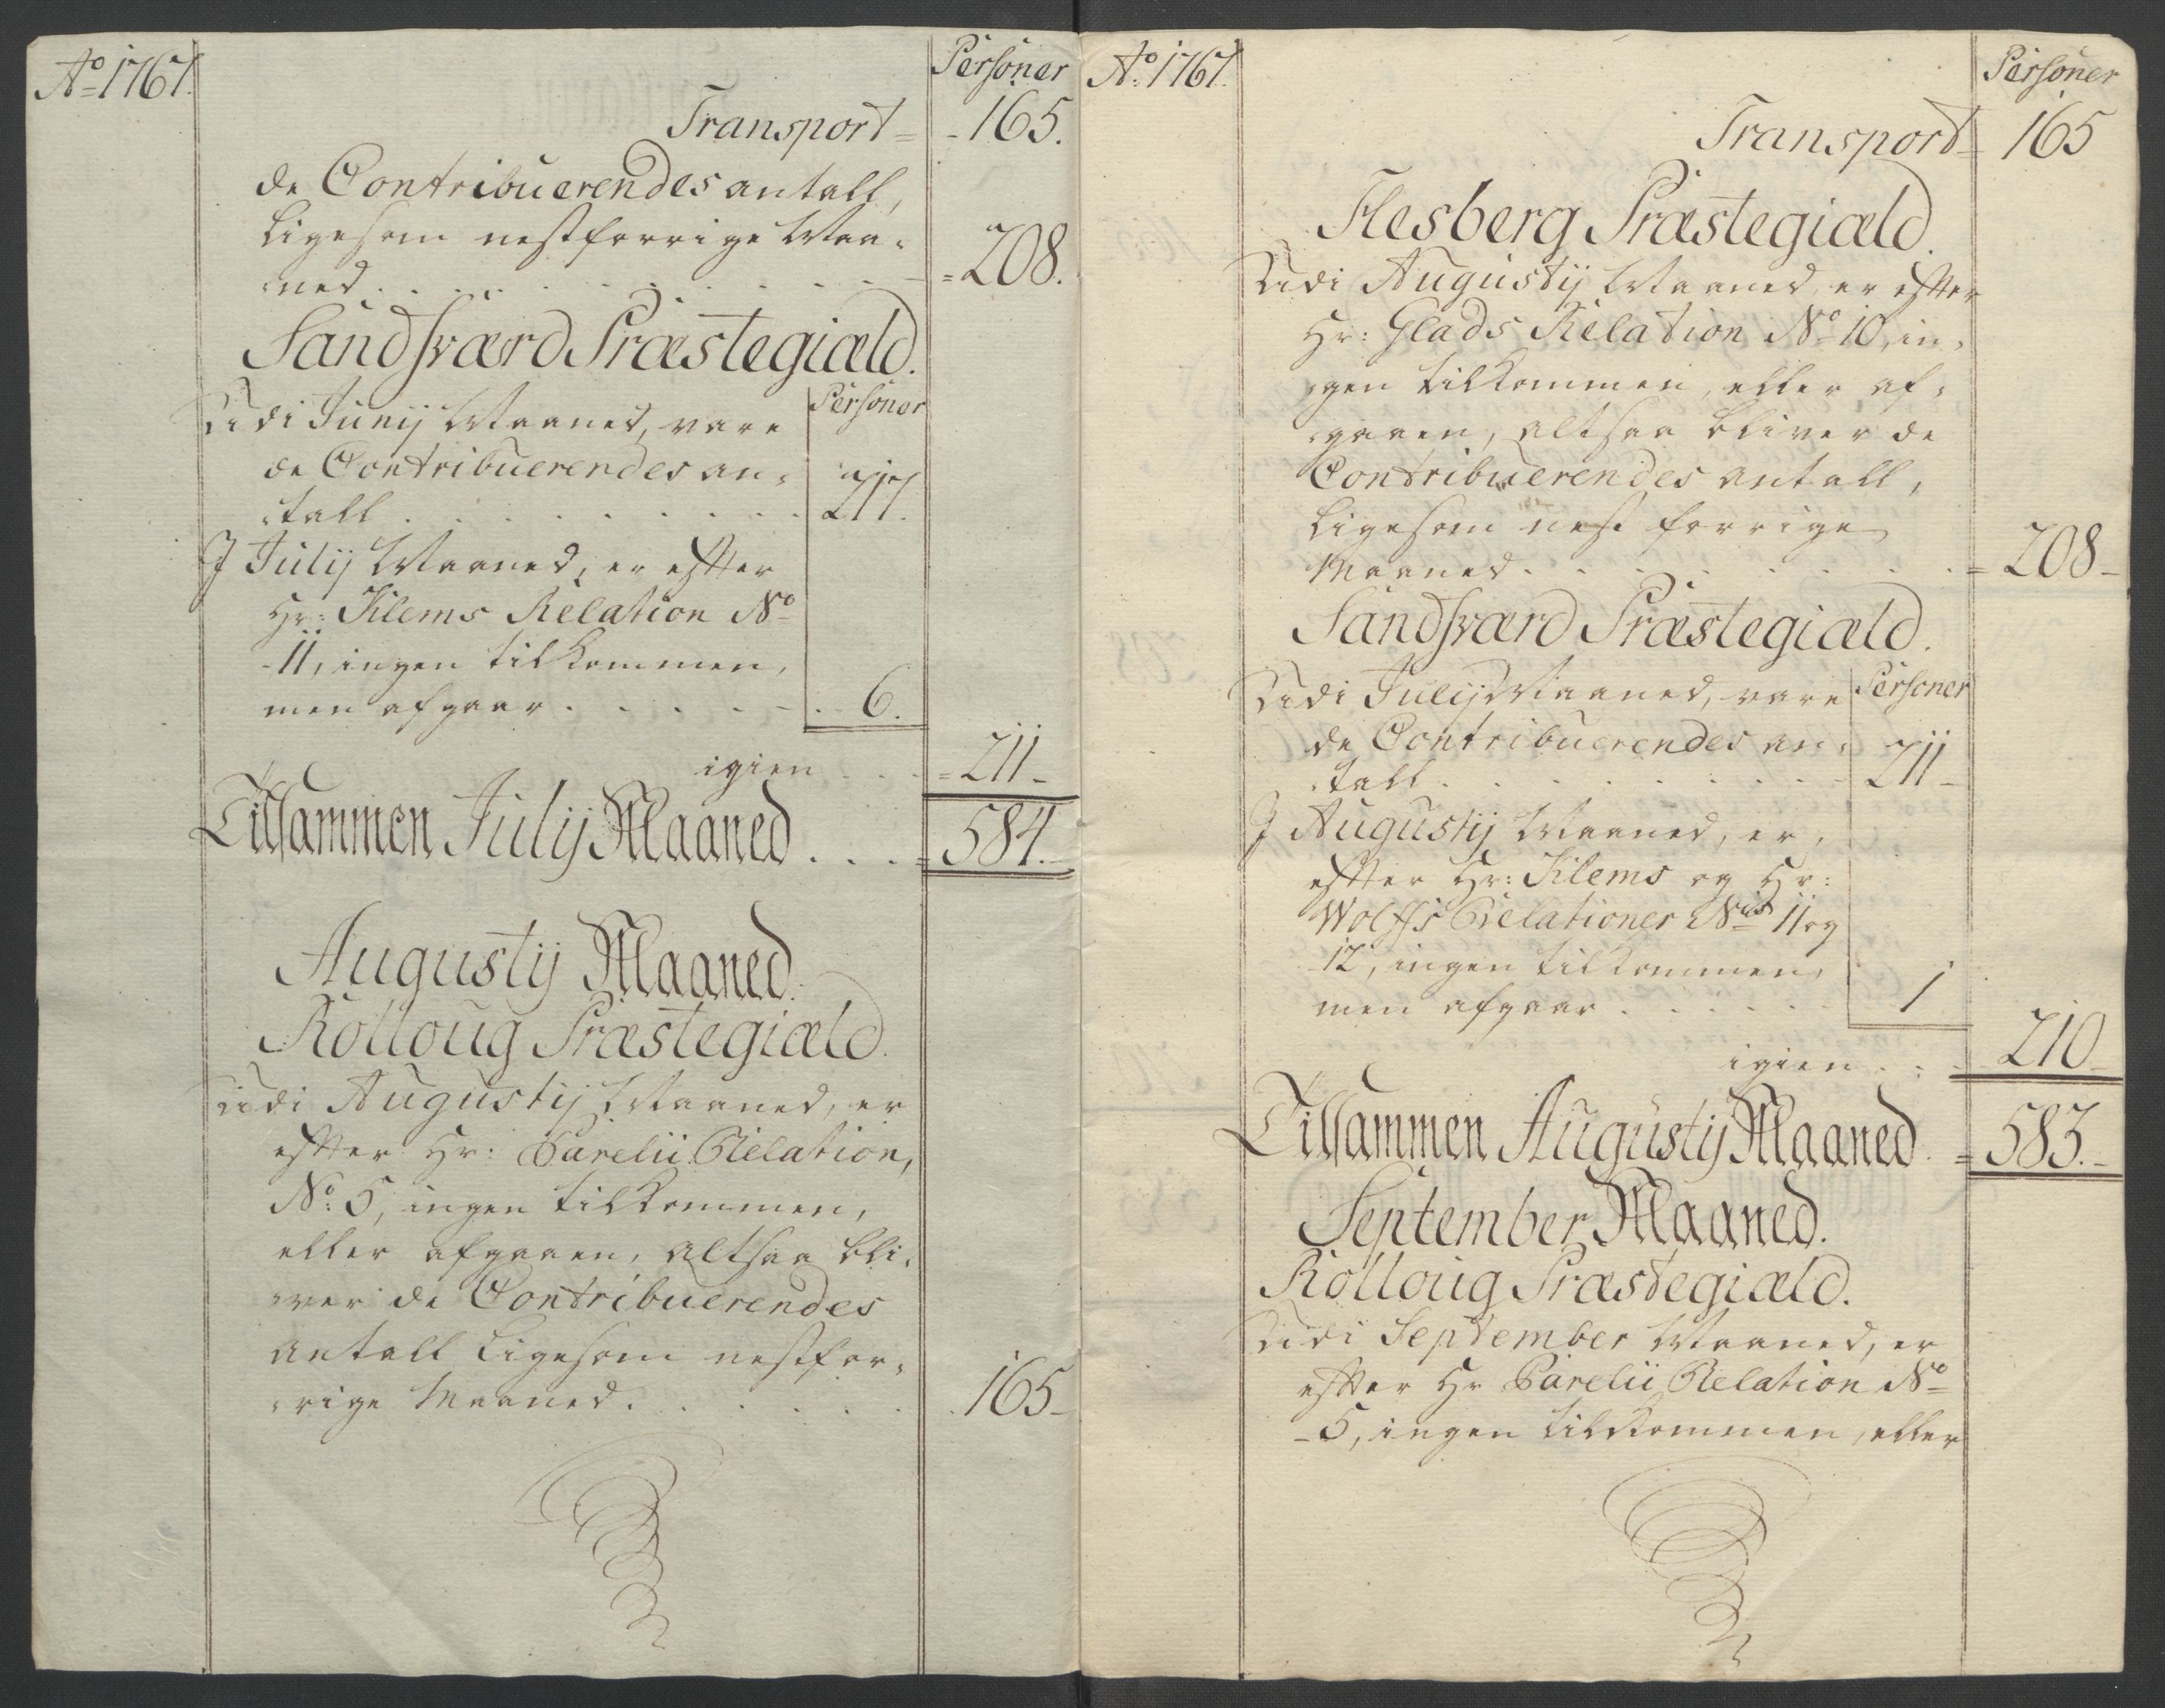 Ao 1767.
Personer
Transport = - 165.
de Contribuerendes antall,
ligesom nestforrige Maa-
-ned . . . . . . . . . = 208.
Sandsværd Præstegiæld.
Udi Junij Maaned, vare Personer
de Contribuerendes an-
-tall . . . . . . . . 217.
I Julij Maaned, er efter
Hr: Klems Relation No
-11, ingen tilkommen,
men afgaar . . . . . . 6.
igien . . . = 211-
Tilsammen Julij Maaned . . . = 584.-
Augustij Maaned.
Rolloug Præstegiæld.
Udi Augustij Maaned, er
efter Hr: Parelii Relation,
No: 5, ingen tilkommen,
eller afgaaen, altsaa bli-
-ver de Contribuerendes
antall ligesom nestfor-
-rige Maaned . . . . . . 165-
Ao: 1767.
Personer
Transport = 165
Flesberg Præstegiæld.
Udi Augustij Maaned, er efter
Hr: Glads Relation No 10, in-
-gen tilkommen, eller af-
-gaaen, altsaa bliver de
Contribuerendes antall,
ligesom nest forrige
Maaned . . . . . . . = 208-
Sandsværd Præstegiæld.
Udi Julij Maaned, vare Personer
de Contribuerendes an-
-tall . . . . . . . 211-
I Augustij Maaned, er,
efter Hr: Klems og Hr:
Wolffs Relationer Nis 11 og
-12, ingen tilkommen,
men afgaar . . . . . 1
igien . . . 210-
Tilsammen Augustij Maaned. = 583.-
September Maaned.
Rolloug Præstegiæld.
Udi September Maaned, er
efter Hr Parelii Relation No
-5, ingen tilkommen, eller